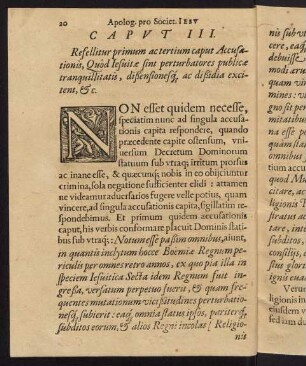 20 Apolog. pro Societ. IESV
CAPVT III.
Refellitur primum ac tertium caput Accusa-
tionis, Quod Iesuitæ sint perturbatores publicæ
tranquillitatis, dissensionesq; ac dissidia exci-
tent, &c.
NON esset quidem necesse,
speciatim nunc ad singula accusa-
tionis capita respondere, quando
præcedente capite ostensum, vni-
uersum Decretum Dominorum
statuum sub vtraq; irritum prorsus
ac inane esse, & quæcunq; nobis in eo obijciuntur
crimina, sola negatione sufficienter elidi: attamen
ne videamur aduersarios fugere velle potius, quam
vincere, ad singula accusationis capita, sigillatim re-
spondebimus. Et primum quidem accusationis
caput, his verbis conformare placuit Dominis stati-
bus sub vtraq;: Notum esse passim omnibus, aiunt,
in quantis inclytum hocce Boemiæ Regnum pe-
riculis per omnes retro annos, ex quo pia illa in
speciem Iesuitica Secta idem Regnum fuit in-
gressa, versatum perpetuo fuerit, & quam fre-
quentes mutationum vicissitudines perturbatio-
nesq; subierit: eaq; omnia status ipsos, pariterq;
subditos eorum, & alios Regni incolas Religio-
nis